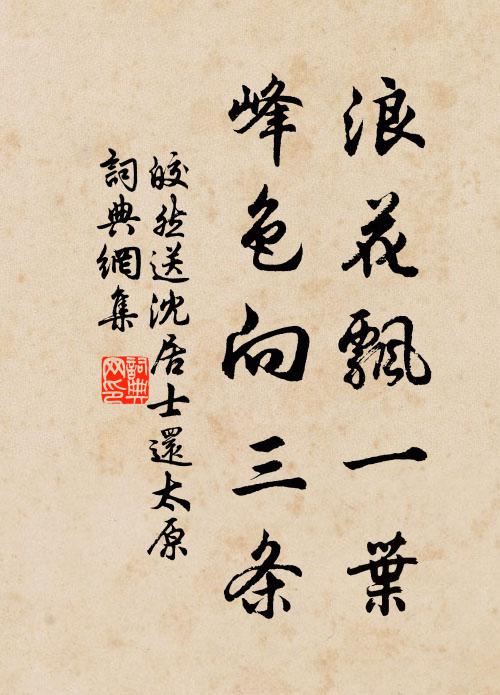 浪花飄一葉
峰色向三条
皎然送沈居士還太原
詞典網集
詞典
网印